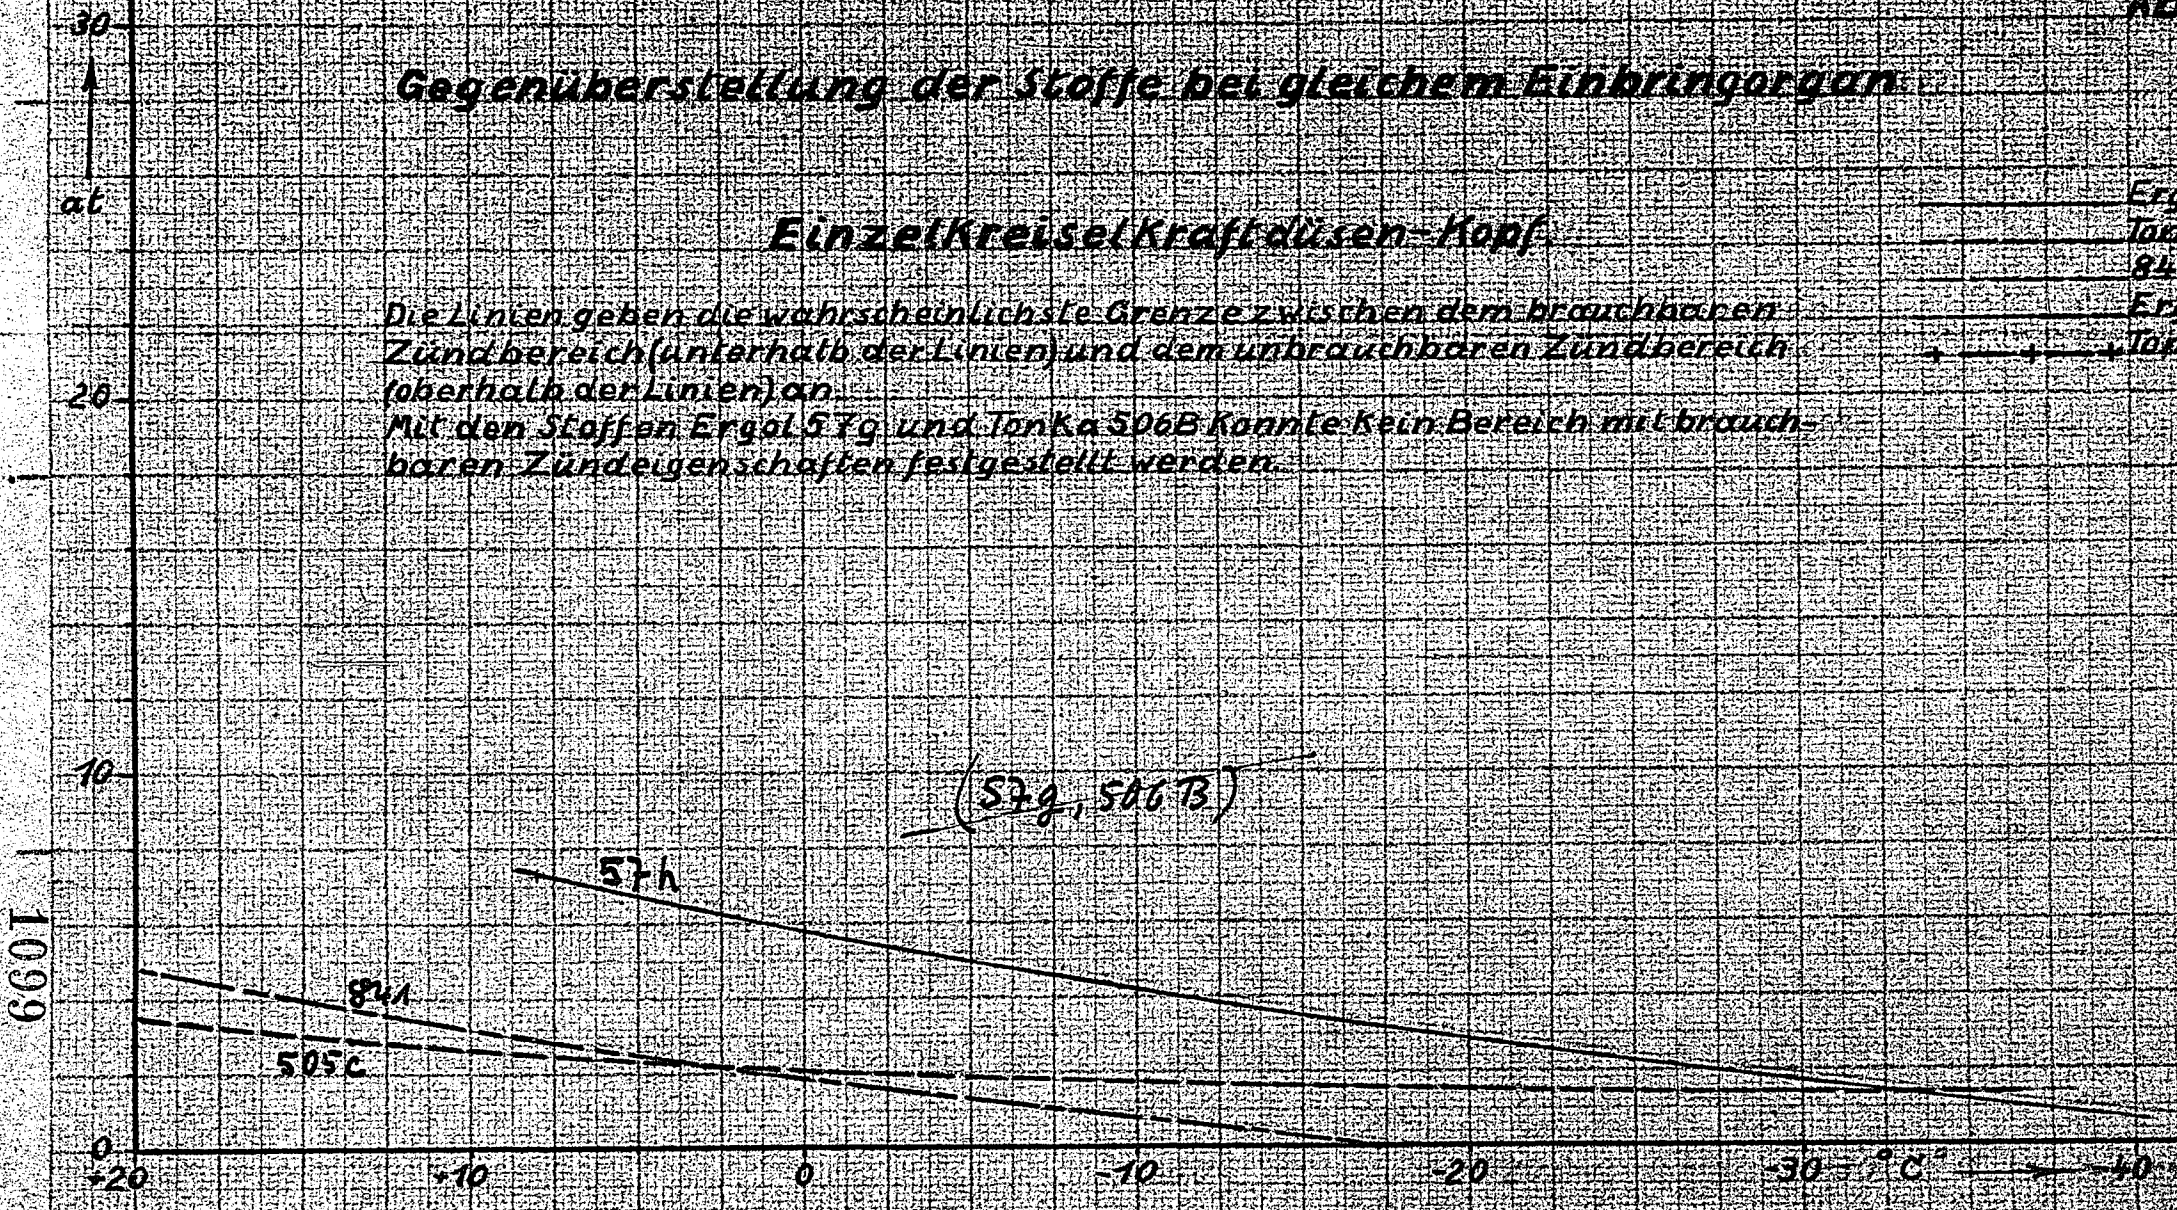 30
Gegenüberstellung der Stoffe bei gleichem Einbringorgan
at
Einzelkreiselkraftdüsen-Kopf.
84
Die Linien geben die wahrscheinlichste Grenze zwischen dem brauchbaren
Zündbereich (unterhalb der Linien) und dem unbrauchbaren Zündbereich
(oberhalb der Linien) an.
20
Mit den Stoffen Ergol 57g und Tonka 506B konnte kein Bereich mit brauch-
baren Zündeigenschaften festgestellt werden.
10
(57g, 506 B)
57h
841
505c
1099
0
+20 +10 0 -10 -20 -30 °C -40